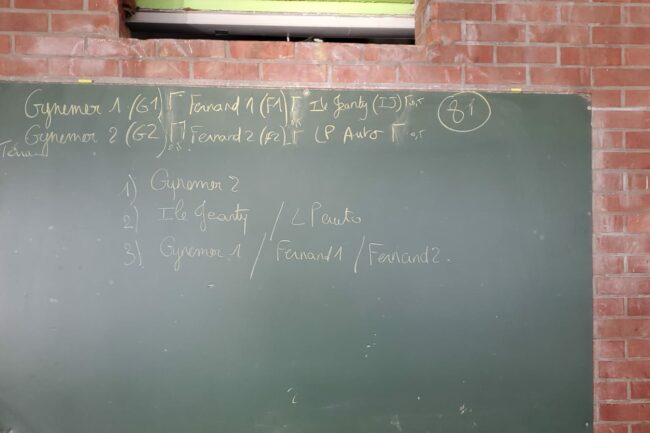 Gynemer 1 (G1) Fernand 1 (F1) Ile Jeanty (IJ) 0,5 81
Gynemer 2 (G2) 0,5 Fernand 2 (F2) LP Auto 0,5
1) Gynemer 2
2) Ile Jeanty / LP auto
3) Gynemer 1 / Fernand1 / Fernand2.